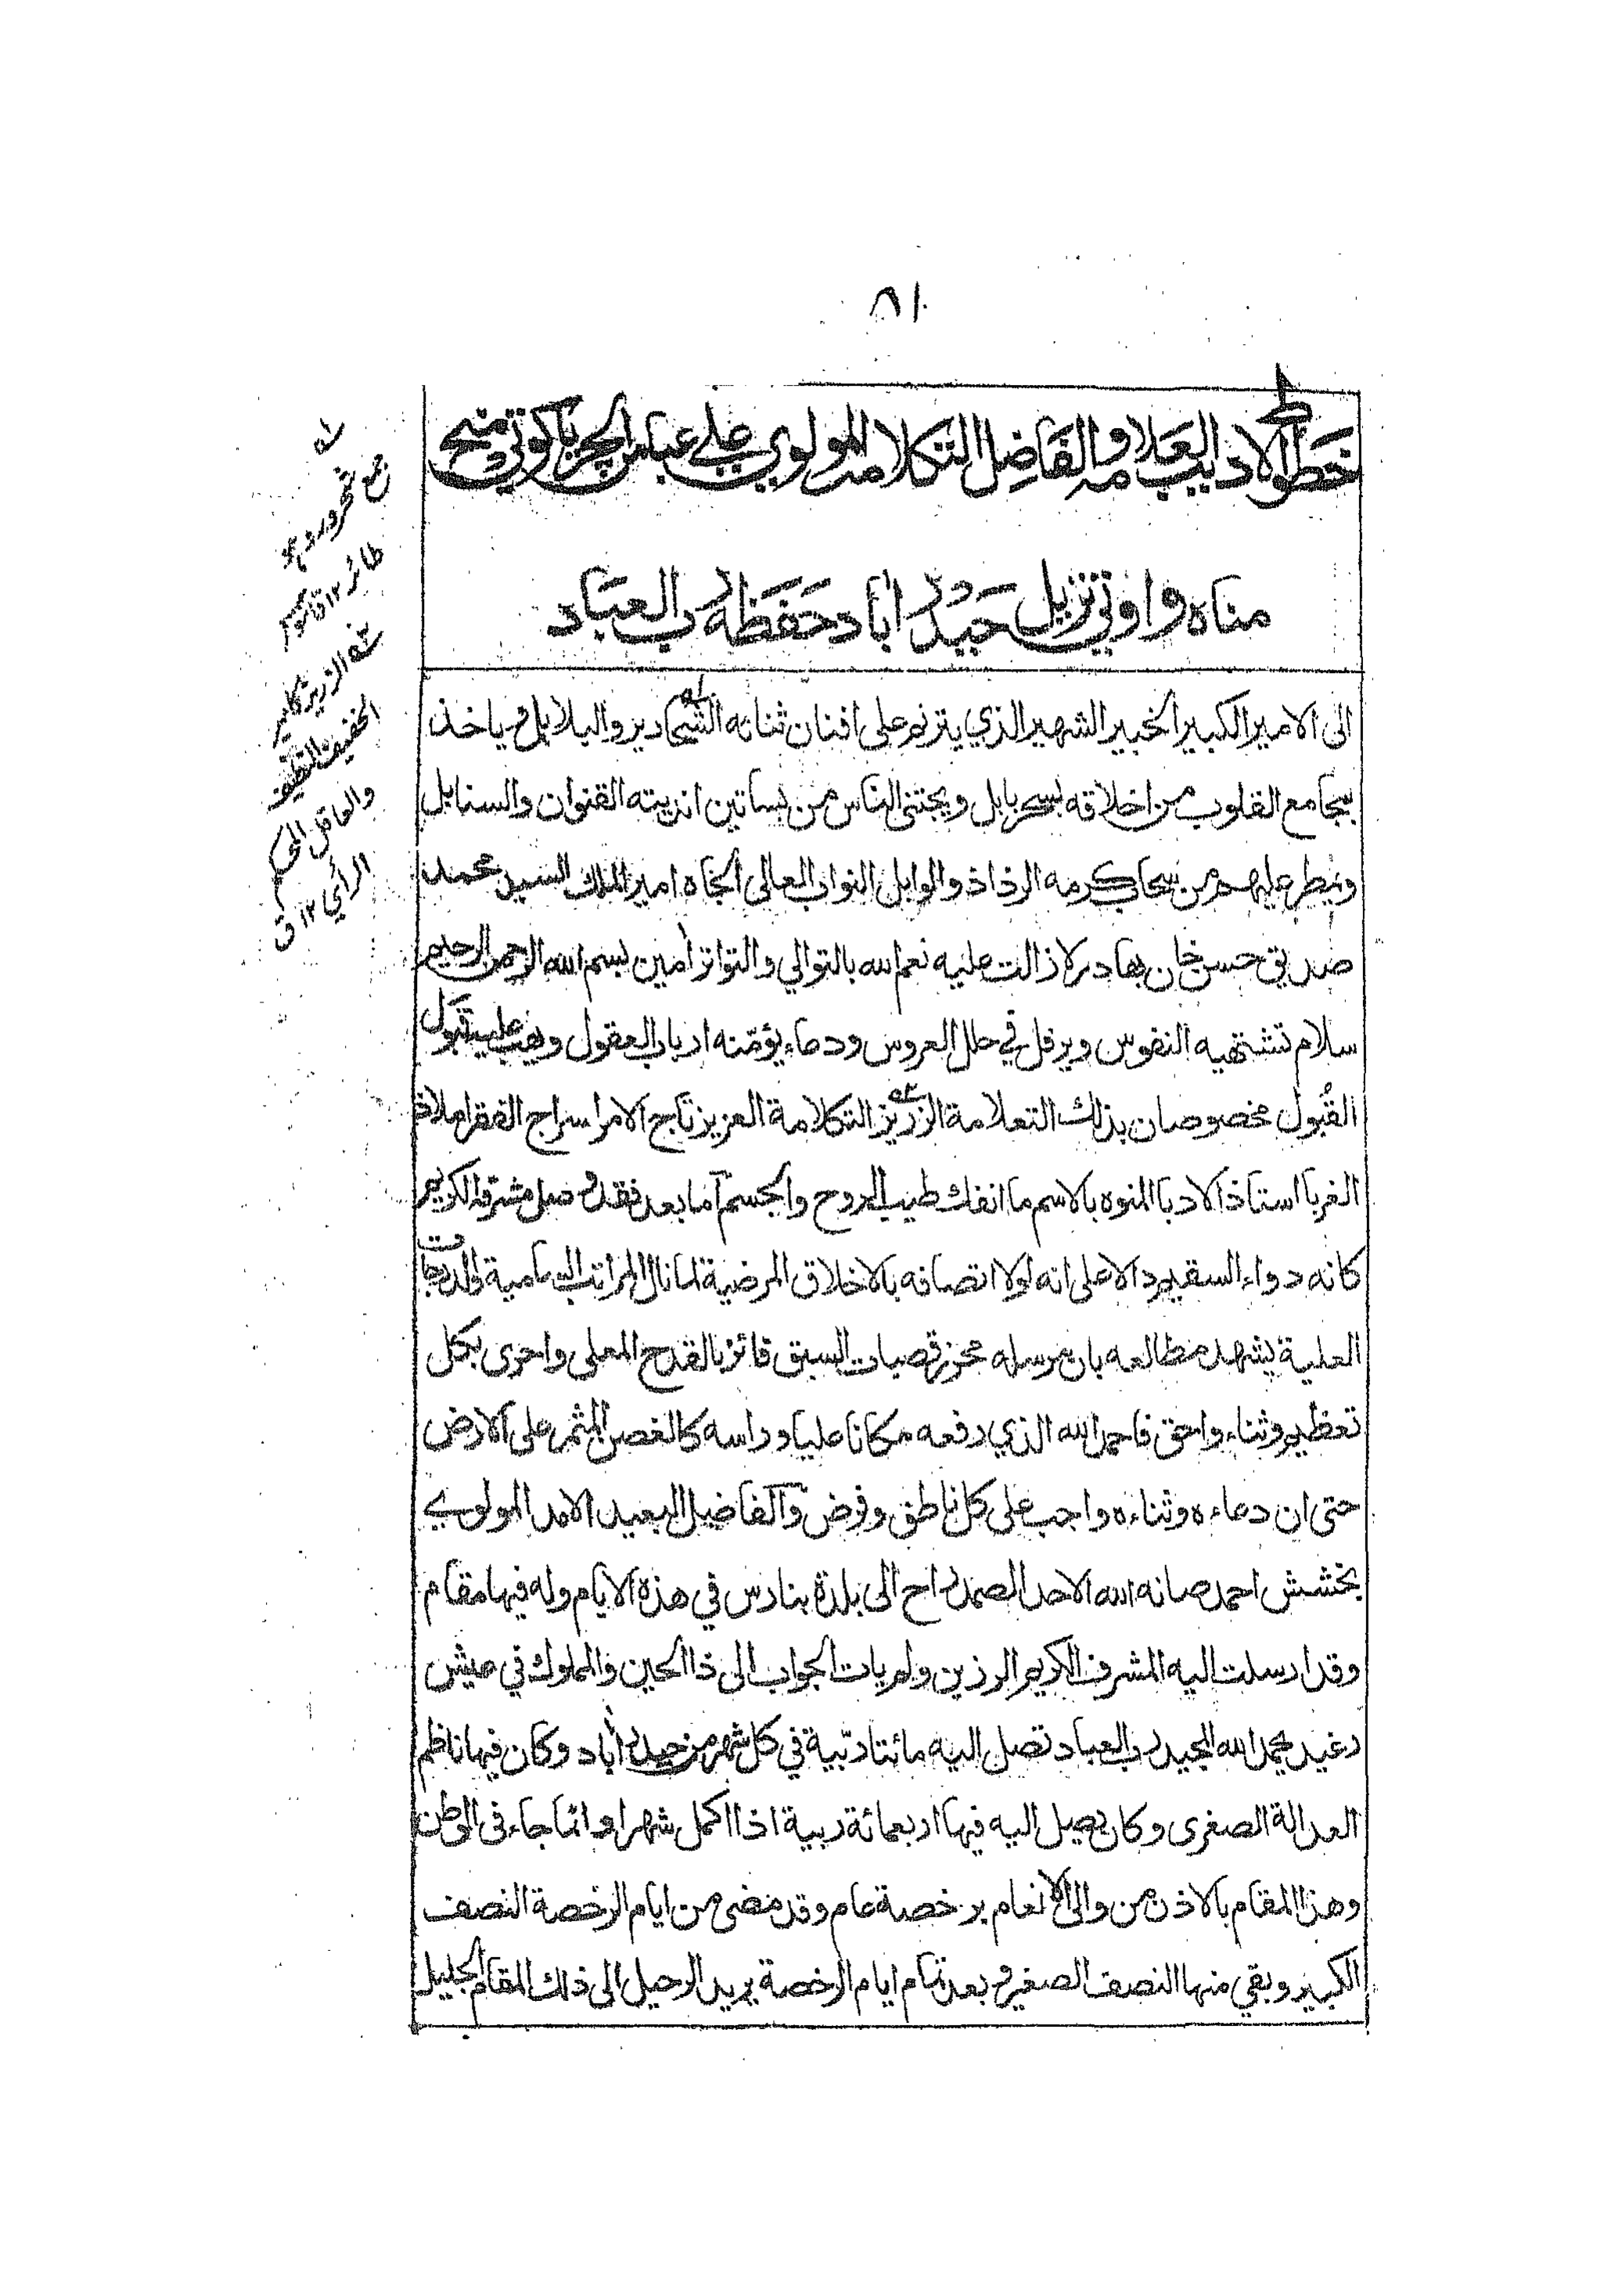 ٨١
خط الاديب العلامه والفاضل التكلامه المولوي علي عباس الچرياكوتي منحي
مناه واوتي نزيل حيدر آباد حفظه رب العباد
الى الامير الكبير الخبير الشهير الذي يترنم على افنان ثنائه الشحادير والبلابل و ياخذ
بمجامع القلوب من اخلاقه بسحر بابل ويجتنى الناس من بساتين انديته القنوان والسنابل
ويمطر عليهم من سحاب كرمه الرذاذ والوابل النواب العالى الجاه امير الملك السيد محمد
صديق حسن خان بهادر لا زالت عليه نعم الله بالتوالي والتواتر آمين بسم الله الرحمن الرحيم
سلام تشتهيه النفوس ويرفل في حلل العروس ودعاء يؤمّنه ارباب العقول ويهب عليه قبول
القبول مخصوصان بذلك التعلامة الزريز التكلامة العزيز تاج الامرا سراج الفقرا ملاذ
الغربا استاذ الادبا المنوه بالاسم ما انفك طيب الروح والجسم آما بعد فقد وصل مشرفه الكريم
كانه دواء السقيم دالا على انه لولا اتصافه بالاخلاق المرضية لما نال المراتب السامية والدرجات
العلية يشهد مطالعه بان مرسله محرز قصبات السبق فائز بالقدح المعلى واحرى بكل
تعظيم وثناء واحق فاحمد الله الذي رفعه مكانا عليا و راسه كالغصن المثمر على الارض
حتى ان دعاءه وثناءه واجب على كل ناطق وفرض والفاضل البعيد الامد المولوي
بخشش احمد صانه الله الاحد الصمد راح الى بلدة بنارس في هذه الايام وله فيها مقام
وقد ارسلت اليه المشرف الكريم الرزين ولم يات الجواب الى ذا الحين والمملوك في عيش
رغيد بحمد الله المجيد رب العباد تصل اليه مائتا ربّية في كل شهر من حيدر آباد وكان فيها ناظم
العدالة الصغرى وكان يصل اليه فيها اربعمائة ربية اذا اكمل شهرا وانما جاء في الوطن
وهذا المقام بالاذن من والى الانعام برخصة عام وقد مضى من ايام الرخصة النصف
الكبير وبقي منها النصف الصغير و بعد تمام ايام الرخصة يريد الرحيل الى ذلك المقام الجليل
جمع شحرور وهو
طائر ١٢ قاموس
الزريز كامير
الخفيف النظيف
والعاقل المحكم
الرأي ١٢ ق